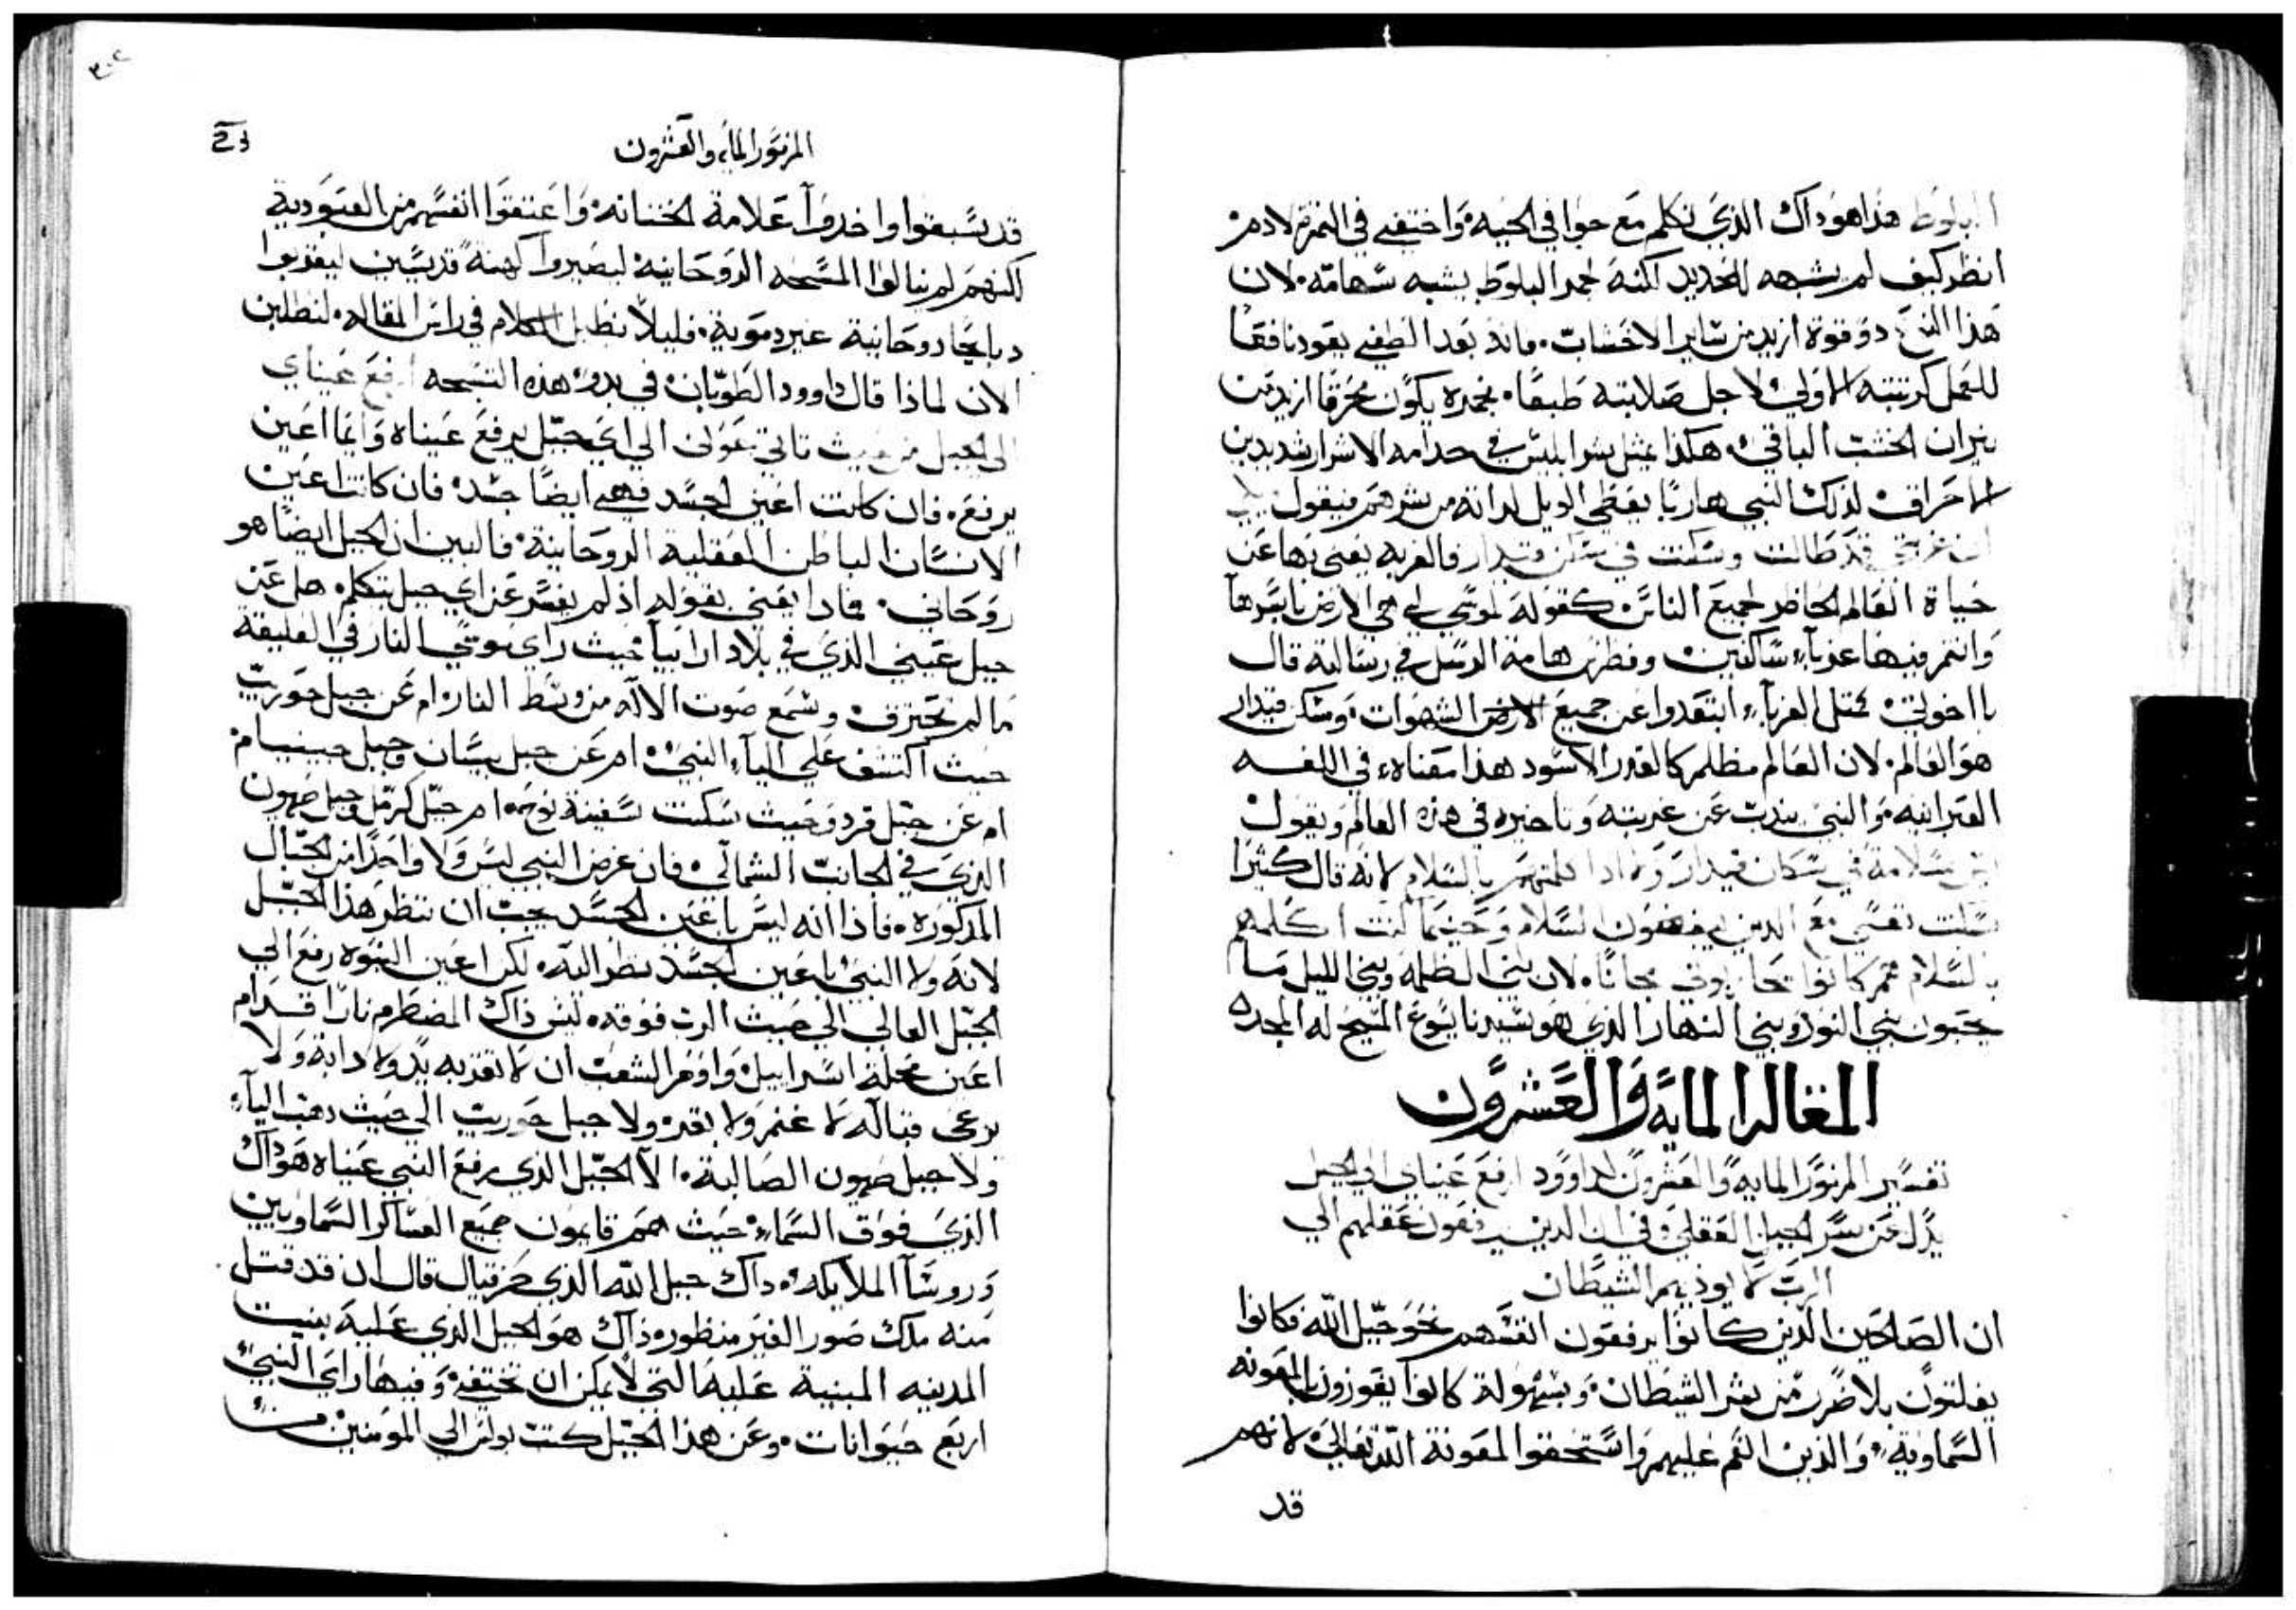 البلوط هذا هو داك الذي تكلم مع حوا في الحيه واختفي في التمره لادم
انظر كيف لم يشبهه للحديد لكنه لجمر البلوط يشبه سهامه لان
هذا النبع دو قوة ازيد من ساير الاخشاب فانه بعد الطفي يعود نافعًا
للعمل كرتبته الاولي لاجل صلابته طبعًا فجمره يكون محرقًا ازيد من
نيران الخشب الباقي هكذا عمل بشر ابليس في خدامه الاشرار شديدين
الاحراق لذلك النبي هاربًا يعطي الويل لداته من شرهم فيقول
غربتي قد طالت وسكنت في مسكن قيدار فالغربه يعني بها عن
حياة العالم الحاضر لجميع الناس كقوله لموسي لي هي الارض باسرها
وانتم فيها غربآء ساكنين وبطرس هامة الرسل في رسالته قال
يا اخوتي كمثل الغربآء ابتعدوا عن جميع الارض الشهوات ومسكن قيدار
هو العالم لان العالم مظلم كالقدر الاسود هذا معناه في اللغه
العبرانيه والنبي يندب عن غربته وتاخيره في هذه العالم ويقول
سلامة في سكان قيدار كلمتهم بالسلام لانه قال كثيرا
سكنت نفسي مع الدين يبغضون السلام وحينما كنت اكلمهم
بالسلام هم كانوا يحاربوني مجانًا لان بني الظلمه وبني الليل ما
يحبون بني النور وبني النهار الذي هو سيدنا يسوع المسيح له المجد
المقاله المايه والعشرون
تفسير المزمور المايه والعشرون لداوود ارفع عيناي الي الجبل
يدل عن سر الجبل العقلي وفي ان الدين يرفعون عقلهم الي
الرب لا يوذيهم الشيطان
ان الصالحين الدين كانوا يرفعون انفسهم نحو جبل الله فكانوا
يفلتون بلا ضرر من بشر الشيطان وبسهوله كانوا يفوزون بالمعونه
السماويه والذين انعم عليهم واستحقوا لمعونة الله تعالي لانهم
قد
المزمور المايه والعشرون
قد يسبقوا واخدوا علامة الختانه واعتقوا انفسهم من العبوديه
لكنهم لم ينالوا المسحه الروحانيه ليصيروا كهنة قديسين ليقربوا
دبايحًا روحانية غير دموية فليلا نطيل الكلام في راس المقاله لنطلبن
الان لماذا قال داوود الطوبان في بدو هذه التسبحه ارفع عيناي
الي الجبل من حيث تاتي عوني الي اي جبل يرفع عيناه وانما اعين
يرفع فان كانت اعين الجسد فهي ايضًا جسد فان كانت اعين
الانسان الباطن العقلية الروحانية فالبين ان الجبل ايضًا هو
روحاني فمادا يعني بقوله اذ لم يفسر عن اي جبل يتكلم هل عن
جبل الذي في بلاد حيث راي موسي النار في العليقة
ما لم تحترق وسمع صوت الاله من وسط النار ام عن جبل حوريب
حيث اكتشف علي اليآء النبي ام عن جبل بيسان وجبل
ام عن جبل قردو حيث سكنت سفينة نوح ام جبل كرمل وجبل صهيون
الذي في الجانب الشمالي فان غرض النبي ليس ولا واحدًا من الجبال
المدكوره فاذا انه ليس باعين الجسد يجب ان ننظر هذا الجبل
لانه ولا النبي باعين الجسد نظر اليه لكن اعين النبوه رفع الي
الجبل العالي الي حيث الرب فوقه ليس ذاك المضطرم نارًا قدام
اعين محلة اسراييل واومر الشعب ان لا تقربه يد ولا دابة ولا
يرعي قباله لا غنم ولا بقر ولا جبل حوريب الي حيث دهب اليآء
ولا جبل صهيون الصالبة الا الجبل الذي يرفع النبي عيناه هو داك
الذي فوق السمآء حيث هم قايمون جميع العساكر السماويين
وروسآ الملايكه داك جبل الله الذي حزقيال قال ان قد قتل
منه ملك صور الغير منظوره ذاك هو الجبل الذي عليه بنيت
المدينه المبنية عليها التي لا يمكن ان تختفي وفيها راي النبي
اربع حيوانات وعن هذا الجبل كتب بولس الي المومنين